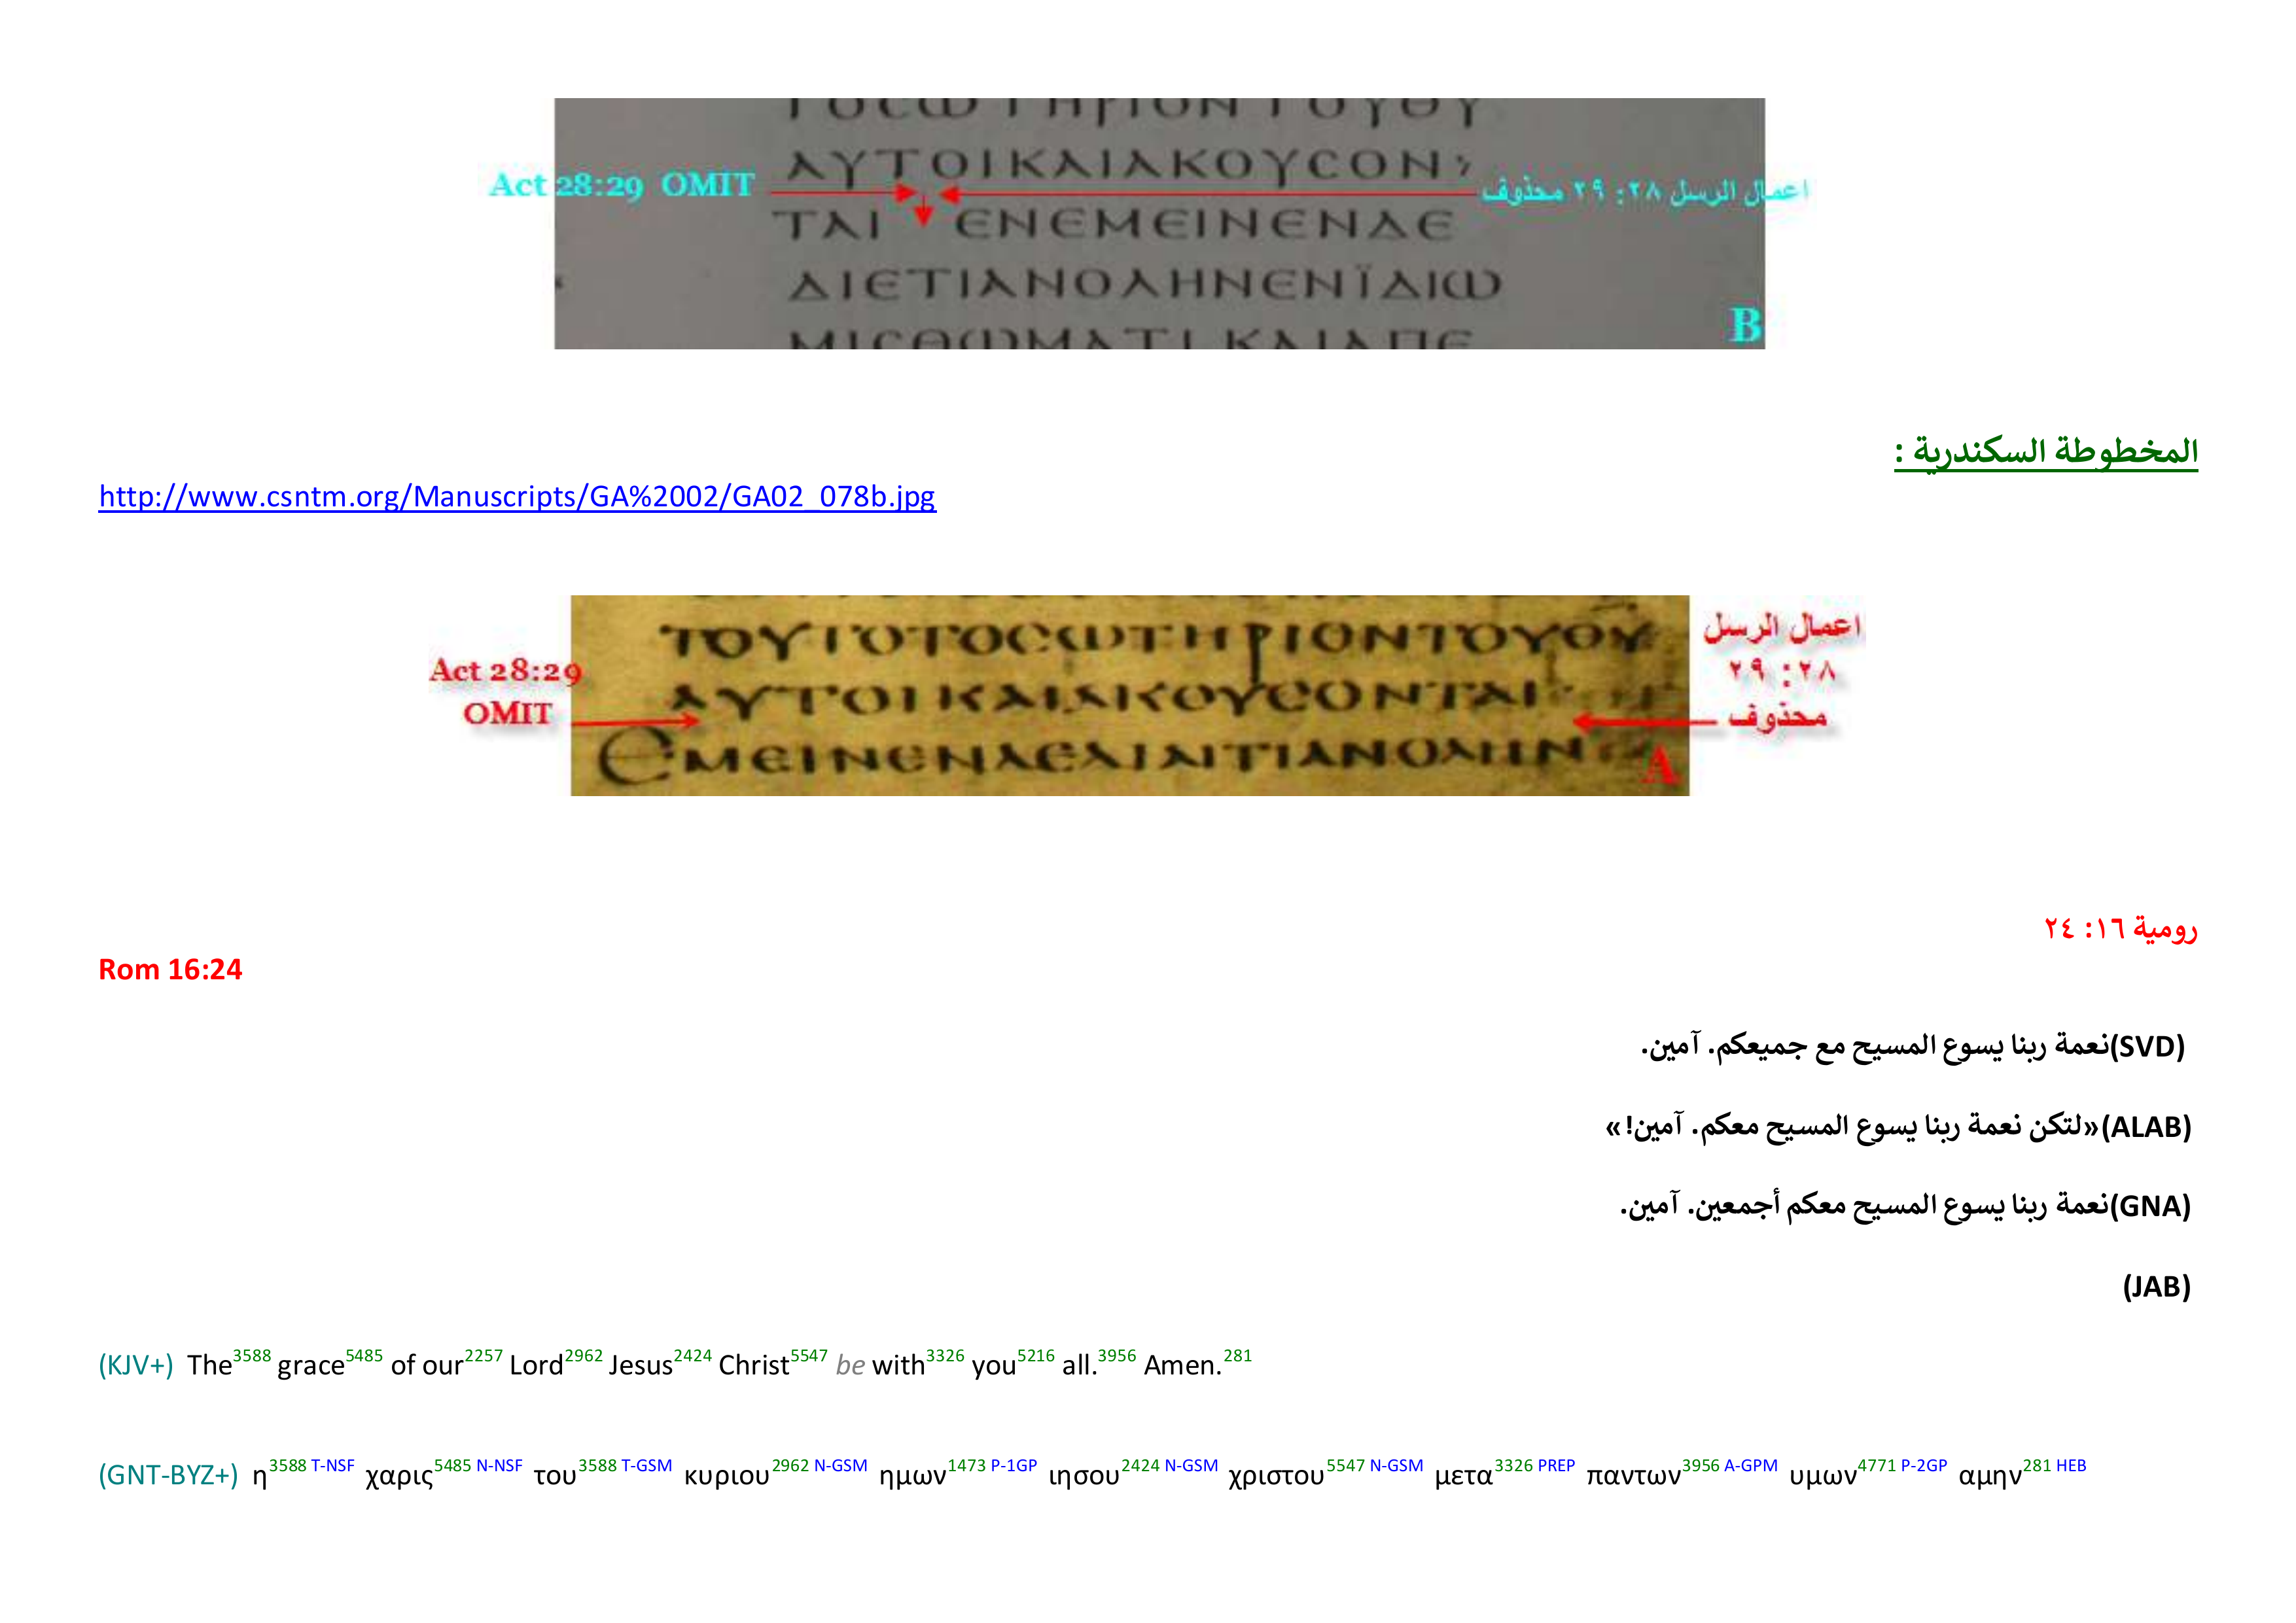 ΤΟCΩΤΗΡΙΟΝΤΟΥΘΥ
ΑΥΤΟΙΚΑΙΑΚΟΥCΟΝ
Act 28:29 OMIT
اعمال الرسل ٢٨: ٢٩ محذوف
ΤΑΙ ΕΝΕΜΕΙΝΕΝΔΕ
ΔΙΕΤΙΑΝΟΛΗΝΕΝΪΔΙΩ
ΜΙCΘΩΜΑΤΙΚΑΙΑΠΕ
B
المخطوطة السكندرية :
http://www.csntm.org/Manuscripts/GA%2002/GA02_078b.jpg
ΤΟΥΤΟΤΟCΩΤΗΡΙΟΝΤΟΥΘΥ
ΑΥΤΟΙΚΑΙΑΚΟΥCΟΝΤΑΙ
Act 28:29
OMIT
اعمال الرسل
٢٨: ٢٩
محذوف
A
رومية ١٦: ٢٤
Rom 16:24
(SVD)نعمة ربنا يسوع المسيح مع جميعكم. آمين.
(ALAB)«لتكن نعمة ربنا يسوع المسيح معكم. آمين!»
(GNA)نعمة ربنا يسوع المسيح معكم أجمعين. آمين.
(JAB)
(KJV+) The3588 grace5485 of our2257 Lord2962 Jesus2424 Christ5547 be with3326 you5216 all.3956 Amen.281
(GNT-BYZ+) η3588 T-NSF χαρις5485 N-NSF του3588 T-GSM κυριου2962 N-GSM ημων1473 P-1GP ιησου2424 N-GSM χριστου5547 N-GSM μετα3326 PREP παντων3956 A-GPM υμων4771 P-2GP αμην281 HEB